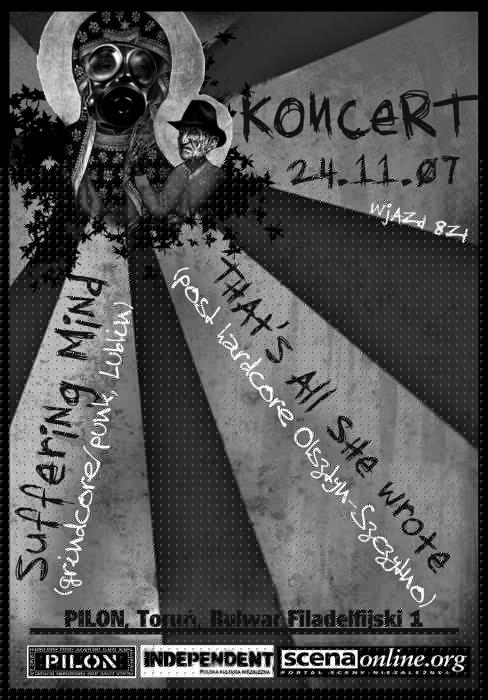 KONCERT
24.11.07
WJAZd 8Zł
Suffering Mind
(grindcore/punk, Lublin)
THAT'S All SHe wrote
(post hardcore Olsztyn-Szczytno)
PILON, Toruń, Bulwar Filadelfijski 1
PILON
INDEPENDENT
scenaonline.org
PORTAL SCENY NIEZALEŻNEJ